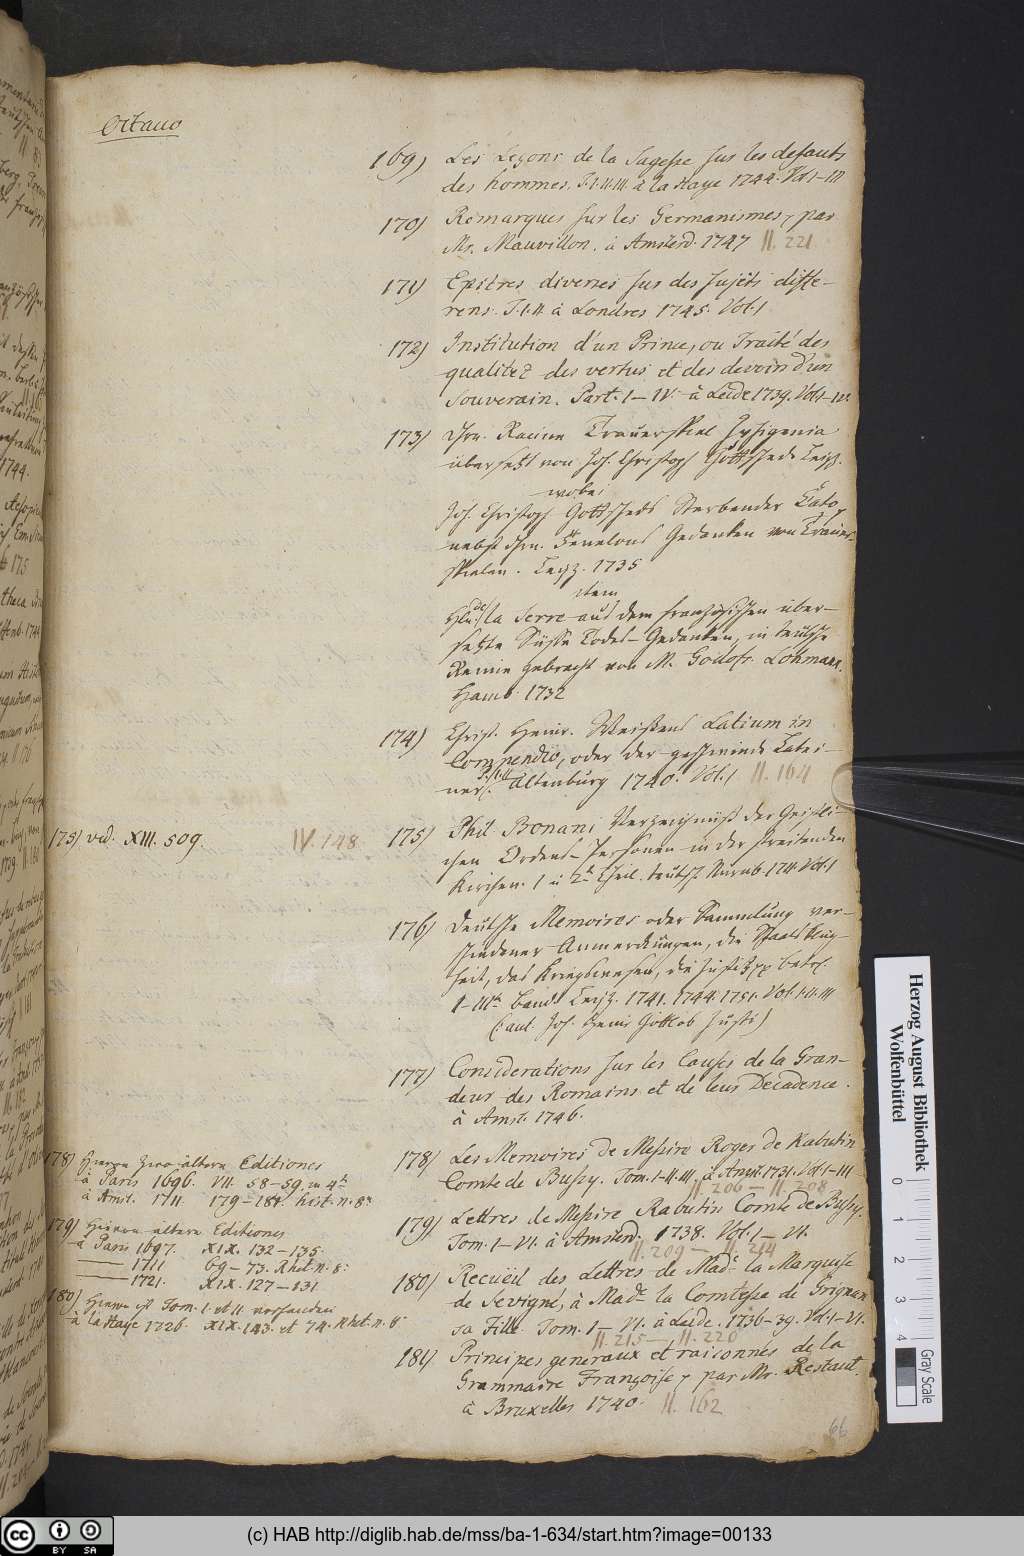 Octavo
169) Les Leçons de la Sagesse sur les defauts
des hommes. T. I. II. III. à la Haye 1744. Vol. I–III
170) Remarques sur les Germanismes, par
Mr. Mauvillon. à Amsterd. 1747 II. 221
171) Epitres diverses sur des sujets diffe-
rens. T. I. II. à Londres 1745. Vol. I
172) Institution d'un Prince, ou Traité des
qualitez des vertus et des devoirs d'un
Souverain. Part. I–IV. à Leide 1739. Vol. I–IV.
173) Hrn. Racine Trauerspiel Iphigenia
übersetzt von Joh. Christoph Gottsched. Leipz.
wobei
Joh. Christoph Gottscheds Sterbender Cato,
nebst Hrn. Fenelons Gedanken von Trauer-
spielen. Leipz. 1735
item
de la Serre aus dem französischen über-
setzte Süsse Todes-Gedanken, in teutsche
Reime gebracht von M. Godofr. Lohmann.
Hamb. 1732
174) Christ. Heinr. Weißens Latium in
Compendio, oder der geschwinde Latei-
ner. P. I. II. Altenburg 1740. Vol. I II. 164
175) vid. XIII. 509. IV. 148
175) Phil Bonani Verzeichniß der Geistli-
chen Ordens-Personen in der streitenden
Kirchen. 1 u 2r Theil. teutsch. Nurnb. 1711. Vol. I
176) Deutsche Memoires oder Sammlung ver-
schiedener Anmerckungen, die Staatsklug-
heit, das Kriegswesen, die Justiz betr.
I–IIIr Band Leipz. 1741. 1744. 1751. Vol. I. II. III
(: aut. Joh. Heinr Gottlob Justi)
177) Considerations sur les Causes de la Gran-
deur des Romains et de leur Decadence.
à Amst. 1746.
178) Hievon zwo ältere Editiones
à Paris 1696. VII. 58–59. in 4to
à Amst. 1711. 179–181. hist. n. 8o
178) Les Memoires de Messire Roger de Rabutin
Comte de Bussy. Tom. I–II. III. à Amst. 1731. Vol. I–III
II. 206 – II. 208
179) Hievon ältere Editiones
à Paris 1697. XIX. 132–135.
1711 69–73. Rhet. n. 8o
1721. XIX. 127–131
179) Lettres de Messire Rabutin Comte de Bussy.
Tom. I–VI. à Amsterd. 1738. Vol. I–VI.
II. 209 – II. 214
180) Hievon ist Tom. I. et II. vorhanden
à la Haye 1726. XIX. 143. et 74. Rhet. n. 8o
180) Recueil des Lettres de Made la Marquise
de Sevigné, à Made la Comtesse de Grignan
sa Fille. Tom. I–VI. à Leide. 1736–39. Vol. I–VI.
II. 215 – II. 220
181) Principes generaux et raisonnés de la
Grammaire Françoise, par Mr. Restaut.
à Bruxelles 1740. II. 162
66
Herzog August Bibliothek
Wolfenbüttel
0 1 2 3 4
Gray Scale
cc BY SA
(c) HAB http://diglib.hab.de/mss/ba-1-634/start.htm?image=00133